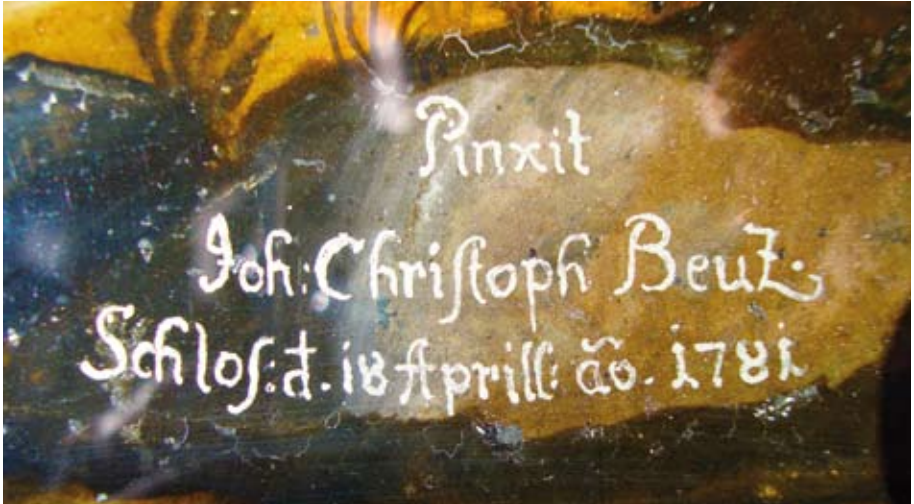 Pinxit
Joh: Chriſtoph Beuz.
Schloſ: d. 18 Aprill: ão. 1781